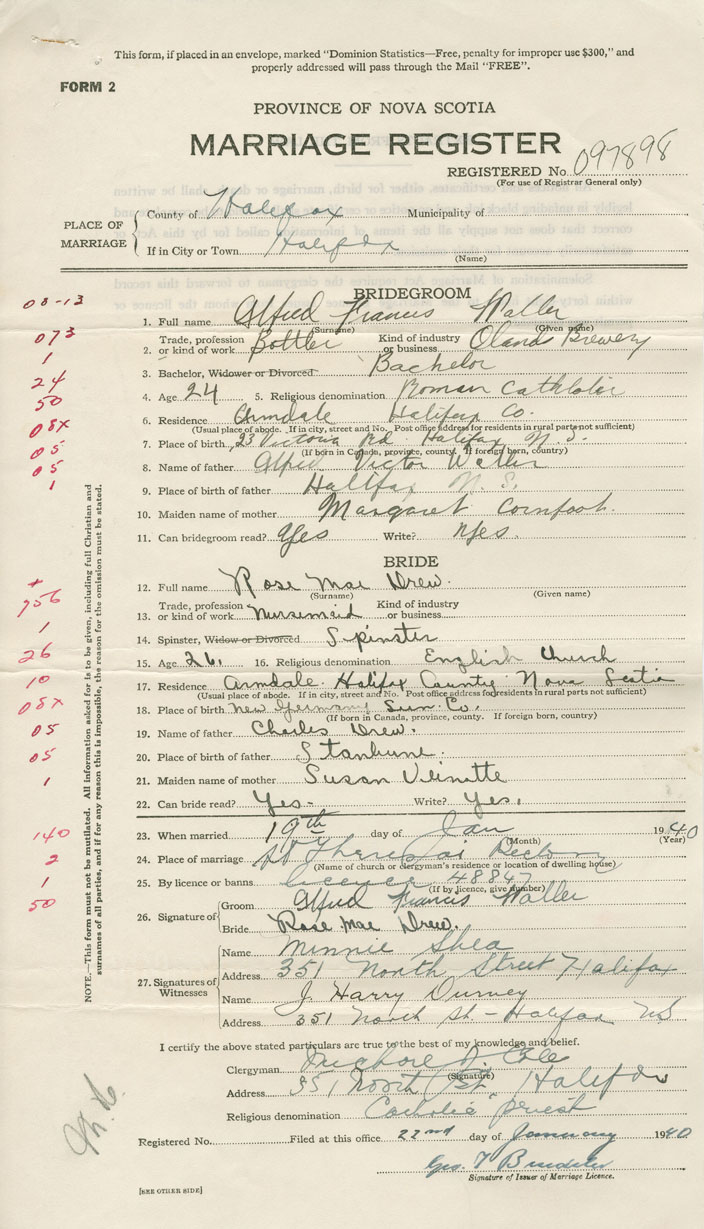 This form, if placed in an envelope, marked "Dominion Statistics—Free, penalty for improper use $300," and
properly addressed will pass through the Mail "FREE".
FORM 2
PROVINCE OF NOVA SCOTIA
MARRIAGE REGISTER
REGISTERED No. 097898
(For use of Registrar General only)
PLACE OF MARRIAGE
County of Halifax Municipality of
If in City or Town Halifax
(Name)
BRIDEGROOM
08-13
1. Full name Alfred Francis Waller
(Surname) (Given name)
073
2. Trade, profession or kind of work Bottler Kind of industry or business Olands Brewery
1
3. Bachelor, Widower or Divorced Bachelor
24
4. Age 24 5. Religious denomination Roman Catholic
50
6. Residence Armdale Halifax Co.
(Usual place of abode. If in city, street and No. Post office address for residents in rural parts not sufficient)
08X
7. Place of birth 23 Victoria Rd Halifax N.S.
(If born in Canada, province, county. If foreign born, country)
05
8. Name of father Alfred Victor Waller
05
9. Place of birth of father Halifax N.S.
1
10. Maiden name of mother Margaret Cornfoot.
11. Can bridegroom read? Yes Write? Yes.
BRIDE
+
12. Full name Rose Mae Drew.
(Surname) (Given name)
756
13. Trade, profession or kind of work Nursemaid Kind of industry or business
1
14. Spinster, Widow or Divorced Spinster
26
15. Age 26. 16. Religious denomination English Church
10
17. Residence Armdale Halifax County Nova Scotia
(Usual place of abode. If in city, street and No. Post office address for residents in rural parts not sufficient)
08X
18. Place of birth New Germany Lun. Co.
(If born in Canada, province, county. If foreign born, country)
05
19. Name of father Charles Drew.
05
20. Place of birth of father Stanburne.
1
21. Maiden name of mother Susan
22. Can bride read? Yes- Write? Yes.
140
23. When married 19th day of Jan 1940
(Month) (Year)
2
24. Place of marriage St Rectory
(Name of church or clergyman's residence or location of dwelling house)
1
25. By licence or banns licence 48847
(If by licence, give number)
50
26. Signature of Groom Alfred Francis Waller
Bride Rose Mae Drew.
27. Signatures of Witnesses
Name Minnie Shea
Address 351 North Street Halifax
Name J. Harry Durney
Address 351 North St - Halifax NS
I certify the above stated particulars are true to the best of my knowledge and belief.
Clergyman
(Signature)
Address 351 North St. Halifax
Religious denomination Catholic priest
Registered No. Filed at this office 22nd day of January 1940
Geo. T
Signature of Issuer of Marriage Licence.
[SEE OTHER SIDE]
NOTE.—This form must not be mutilated. All information asked for is to be given, including full Christian and
surnames of all parties, and if for any reason this is impossible, the reason for the omission must be stated.